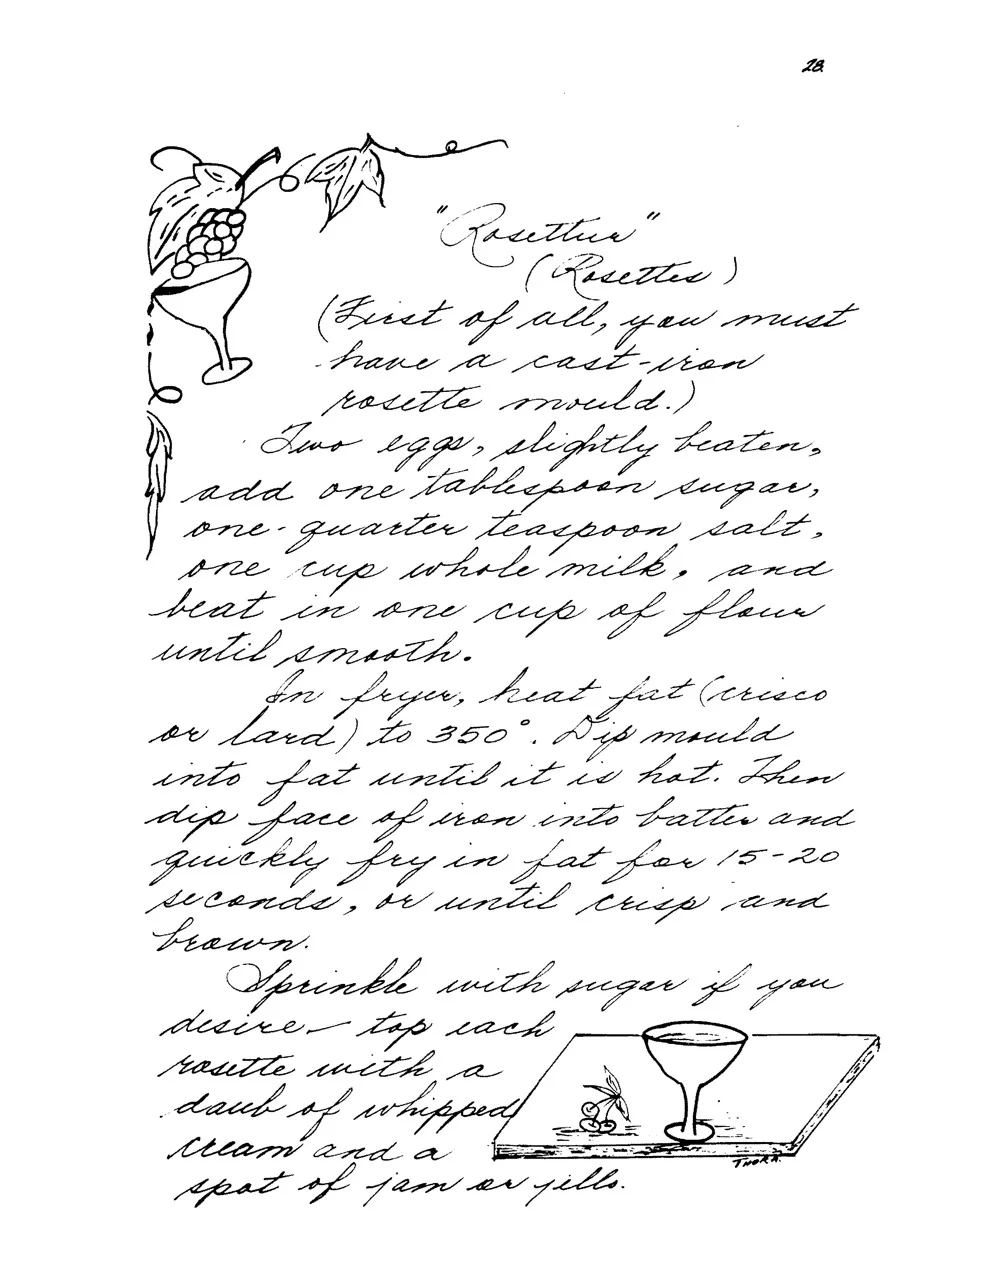 28.
"Rosettur"
(Rosettes)
(First of all, you must
have a cast-iron
rosette mould.)
Two eggs, slightly beaten,
add one tablespoon sugar,
one-quarter teaspoon salt,
one cup whole milk, and
beat in one cup of flour
until smooth.
In fryer, heat fat (crisco
or lard) to 350°. Dip mould
into fat until it is hot. Then
dip face of iron into batter and
quickly fry in fat for 15-20
seconds, or until crisp and
brown.
Sprinkle with sugar if you
desire — top each
rosette with a
daub of whipped
cream and a
spot of jam or jello.
THORA.